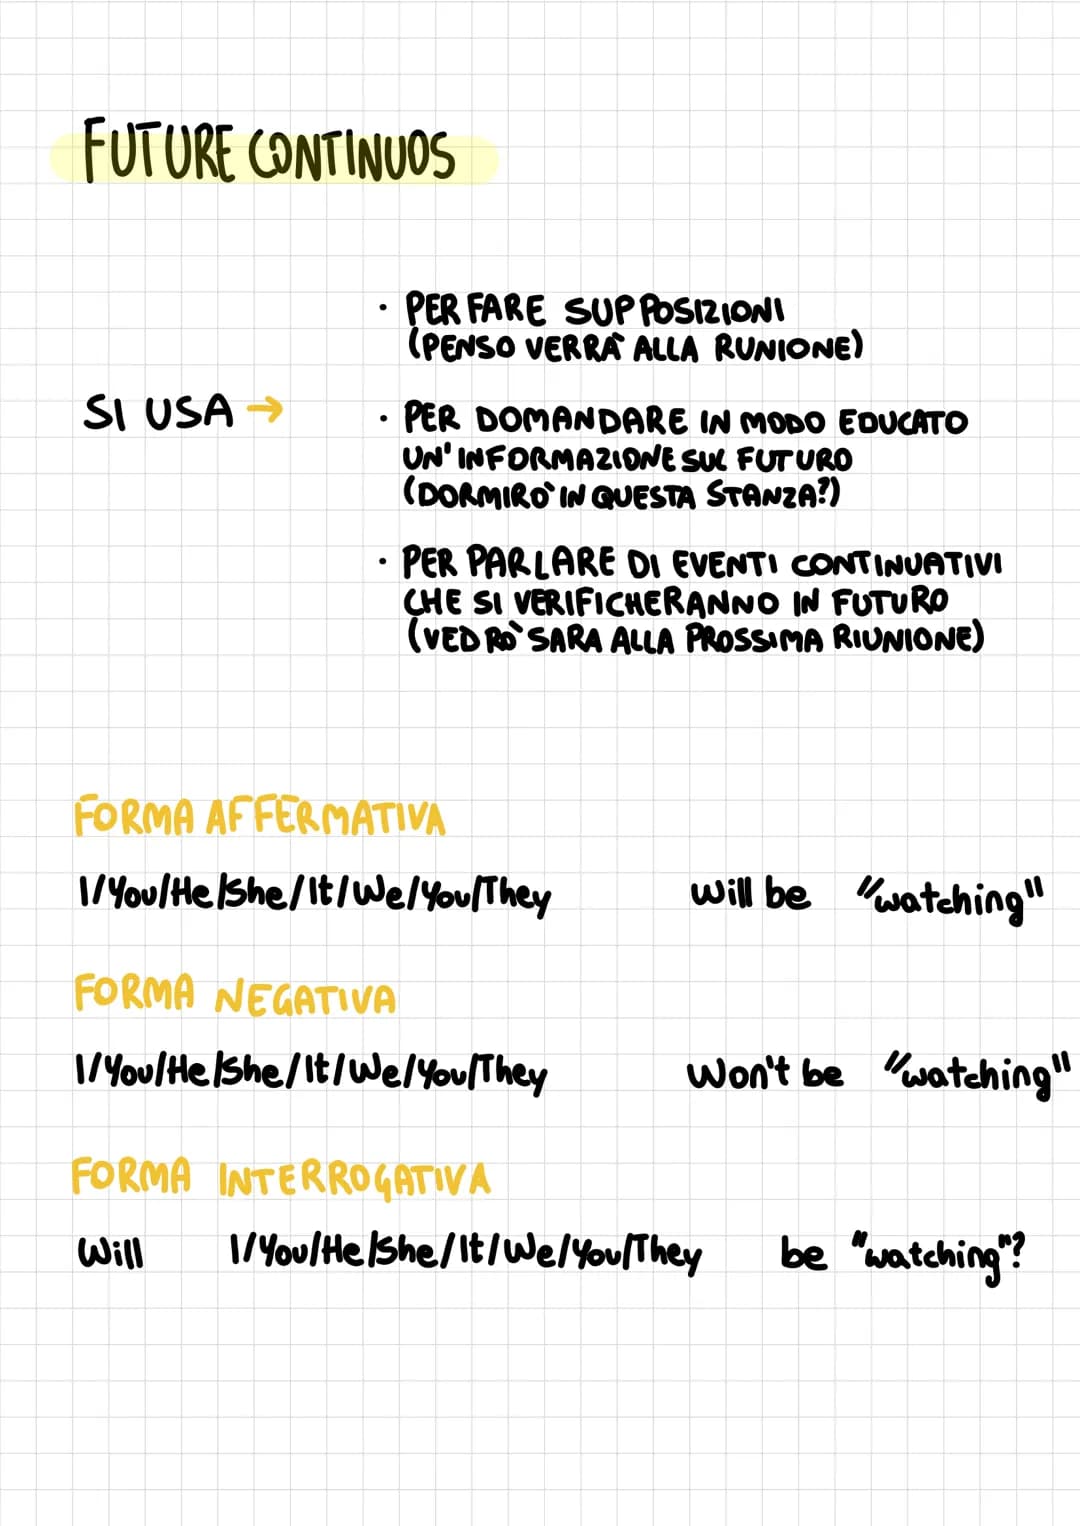 FUTURE CONTINUOS
· PER FARE SUPPOSIZIONI
(PENSO VERRÀ ALLA RUNIONE)
SI USA →
· PER DOMANDARE IN MODO EDUCATO
UN'INFORMAZIONE SUL FUTURO
(DORMIRO' IN QUESTA STANZA?)
· PER PARLARE DI EVENTI CONTINUATIVI
CHE SI VERIFICHERANNO IN FUTURO
(VEDRO' SARA ALLA PROSSIMA RIUNIONE)
FORMA AFFERMATIVA
I/You/He/She/It/We/You/They will be "watching"
FORMA NEGATIVA
I/You/He/She/It/We/You/They won't be "watching"
FORMA INTERROGATIVA
Will I/You/He/She/It/We/You/They be "watching"?